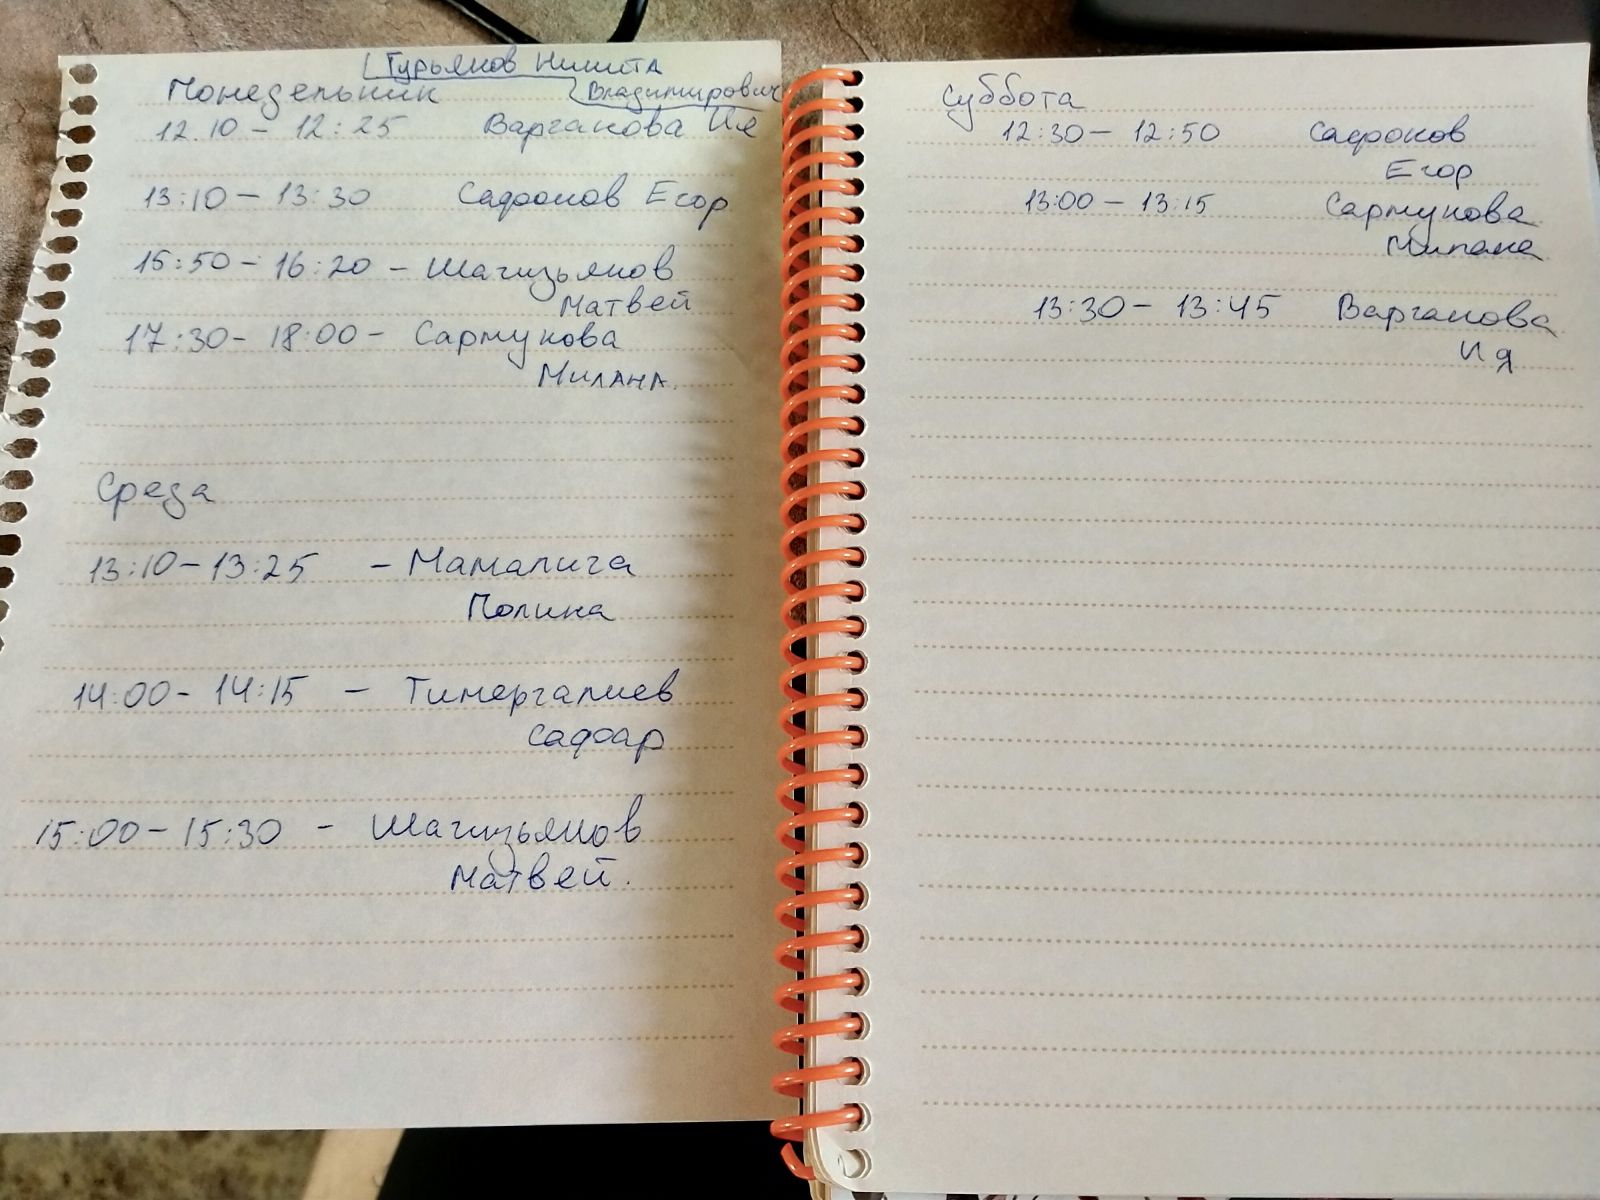 Гурьянов Никита
Владимирович
Понедельник
12.10 - 12:25 Варганова Ия
13:10 - 13:30 Сафронов Егор
15:50 - 16:20 - Шагизьянов
Матвей
17:30 - 18:00 - Сармукова
Милана.
Среда
13:10 - 13:25 - Мамалига
Полина
14:00 - 14:15 - Тимергалиев
Сафар
15:00 - 15:30 - Шагизьянов
Матвей.
Суббота
12:30 - 12:50 Сафронов
Егор
13:00 - 13:15 Сармукова
Милана
13:30 - 13:45 Варганова
Ия